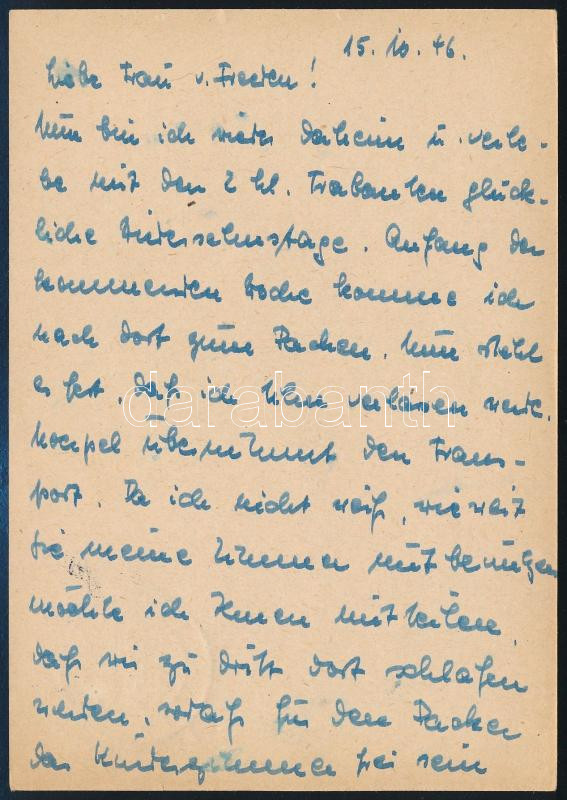 15. 10. 46.
Liebe Frau v. Freeden!
Nun bin ich wieder daheim u. verle-
be mit den 2 kl. Trabanten glück-
liche Wiedersehnstage. Anfang der
kommenden Woche komme ich
nach dort zum Packen. Nun steht
es fest, daß ich Ulm verlassen werde.
übernimmt den Trans-
port. Da ich nicht weiß, wie weit
Sie meine Zimmer mitbenützen
möchte ich Ihnen mitteilen,
daß wir zu dritt dort schlafen
werden, sodaß für den Packer
das Kinderzimmer frei sein
darabanth